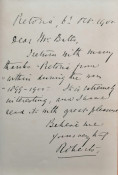 Pretoria, 6th Oct. 1900
Dear Mr. Batts,
I return with many
thanks - Pretoria from
within during the war
- 1899-1900 - It is extremely
interesting, and I have
read it with great pleasure
Believe me
yours very truly
Roberts